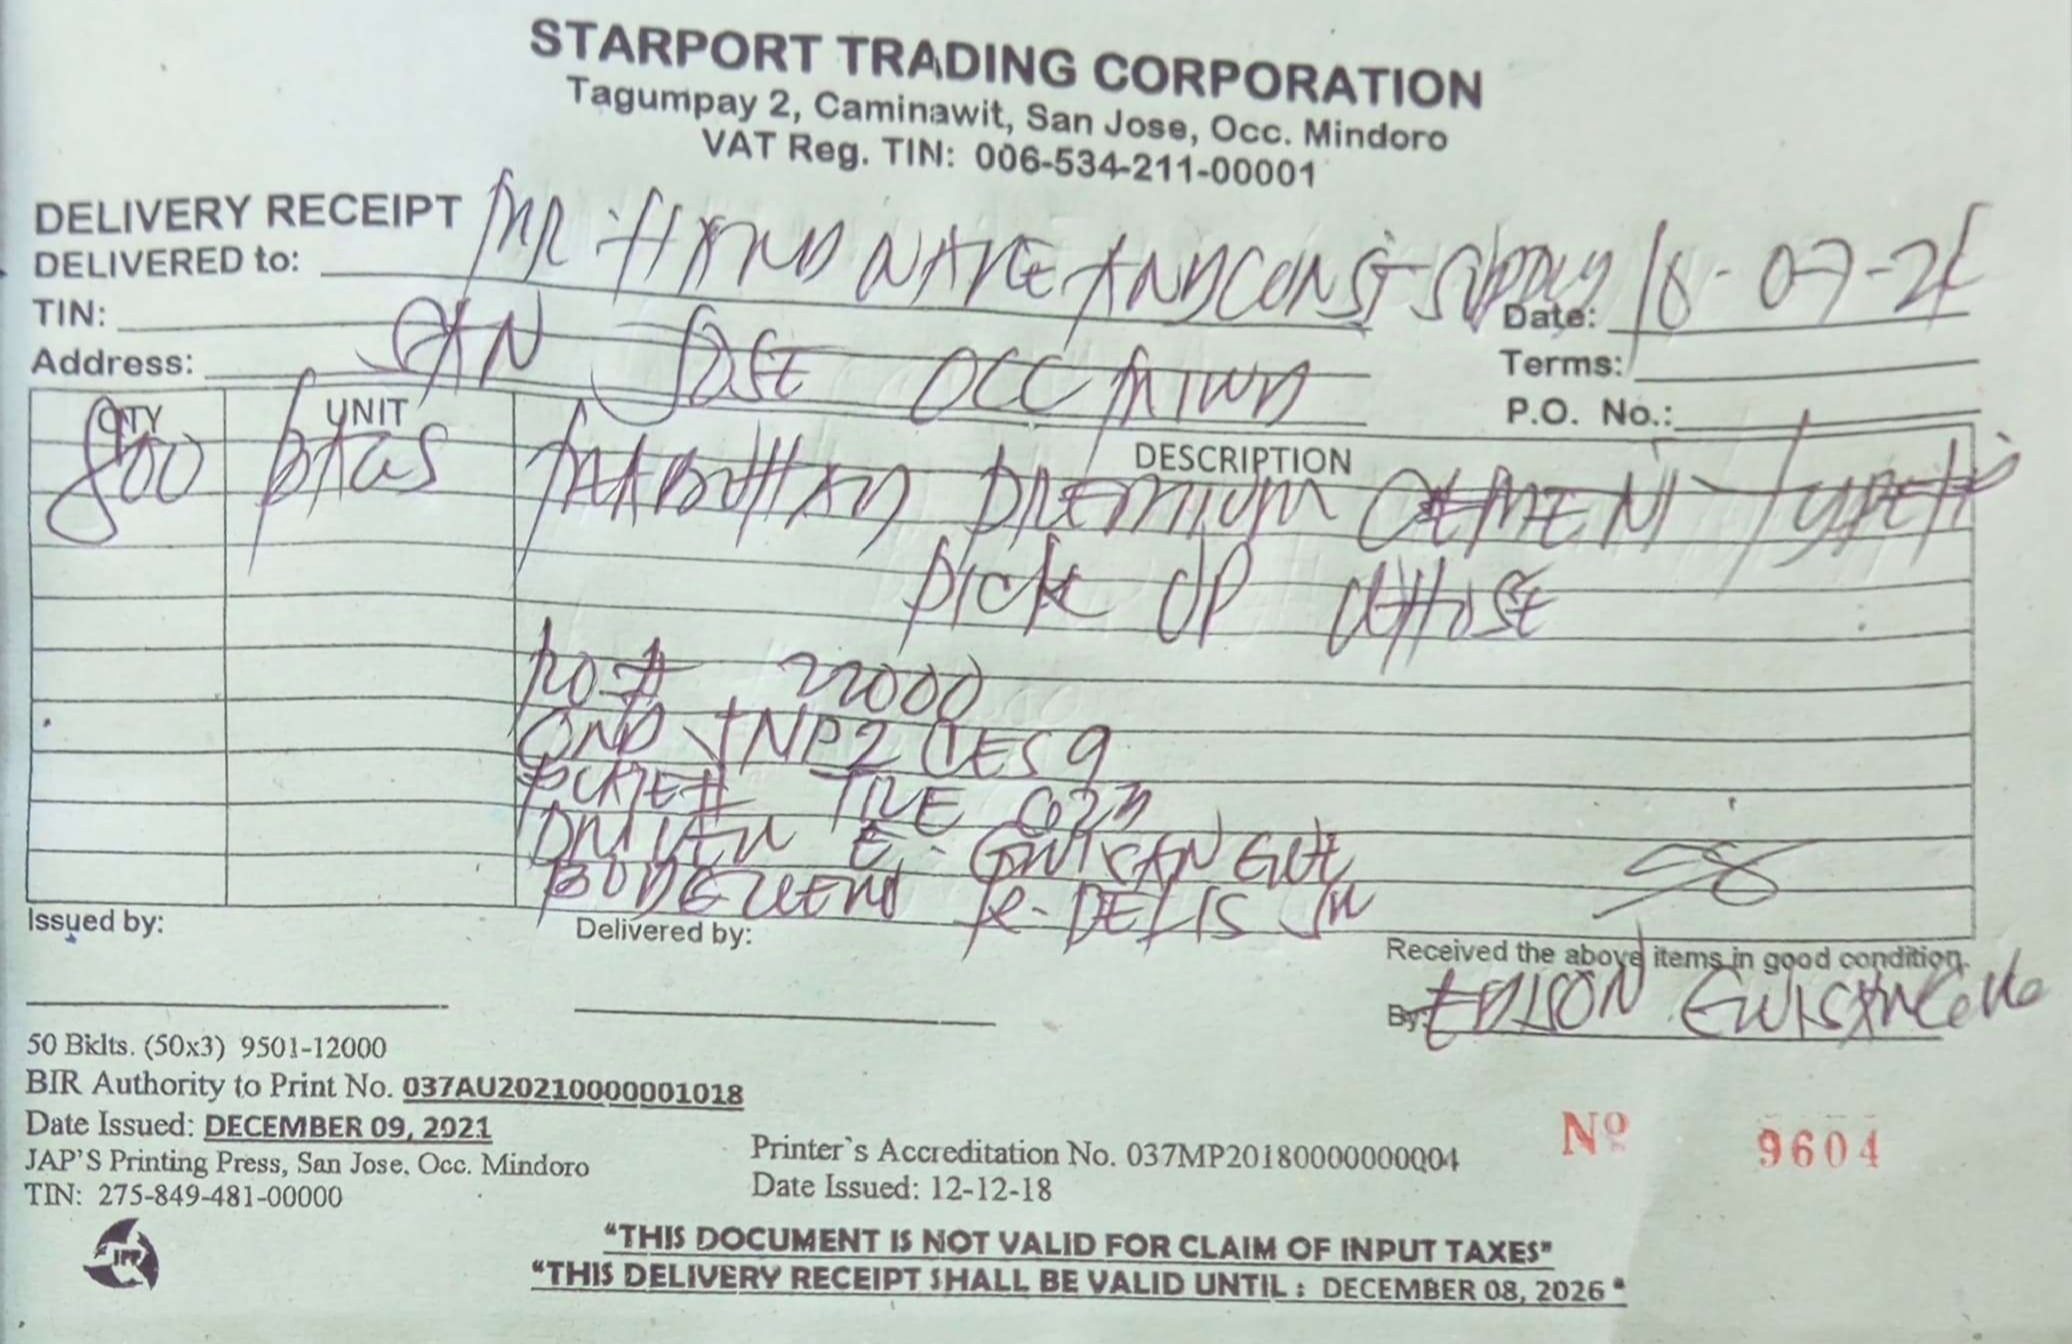 STARPORT TRADING CORPORATION
Tagumpay 2, Caminawit, San Jose, Occ. Mindoro
VAT Reg. TIN: 006-534-211-00001
DELIVERY RECEIPT
DELIVERED to: MR HARDWARE AND CONST SUPPLY
TIN:
Date:
Address: SAN JOSE OCC MIN
Terms:
P.O. No.:
QTY UNIT DESCRIPTION
800 BAGS PREMIUM CEMENT TYPE
PICK UP
PO# 22000
PLATE#
DRIVER E.
R. DELIS JR
Issued by:
Delivered by:
Received the above items in good condition.
By: EDISON
50 Bklts. (50x3) 9501-12000
BIR Authority to Print No. 037AU20210000001018
Date Issued: DECEMBER 09, 2021
JAP'S Printing Press, San Jose, Occ. Mindoro
TIN: 275-849-481-00000
Printer's Accreditation No. 037MP20180000000004
Date Issued: 12-12-18
Nº 9604
"THIS DOCUMENT IS NOT VALID FOR CLAIM OF INPUT TAXES"
"THIS DELIVERY RECEIPT SHALL BE VALID UNTIL : DECEMBER 08, 2026 "